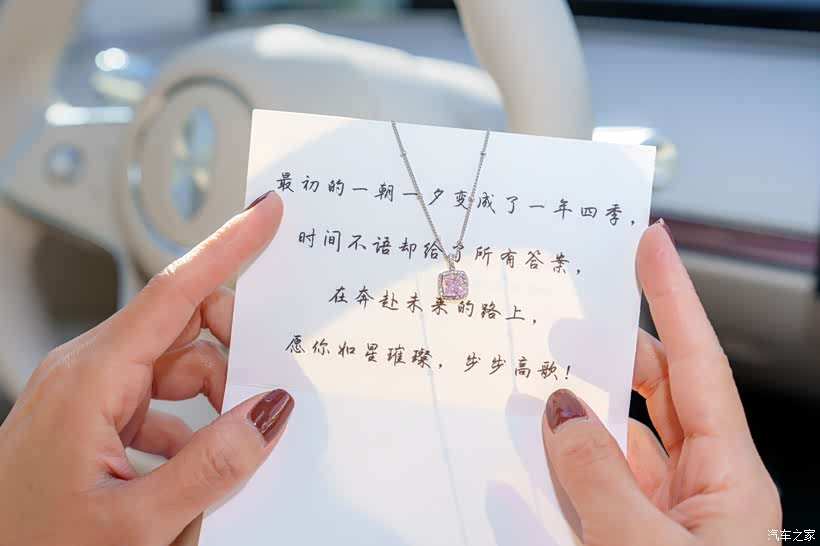 最初的一朝一夕变成了一年四季，
时间不语却给了所有答案，
在奔赴未来的路上，
愿你如星璀璨，步步高歌！
汽车之家